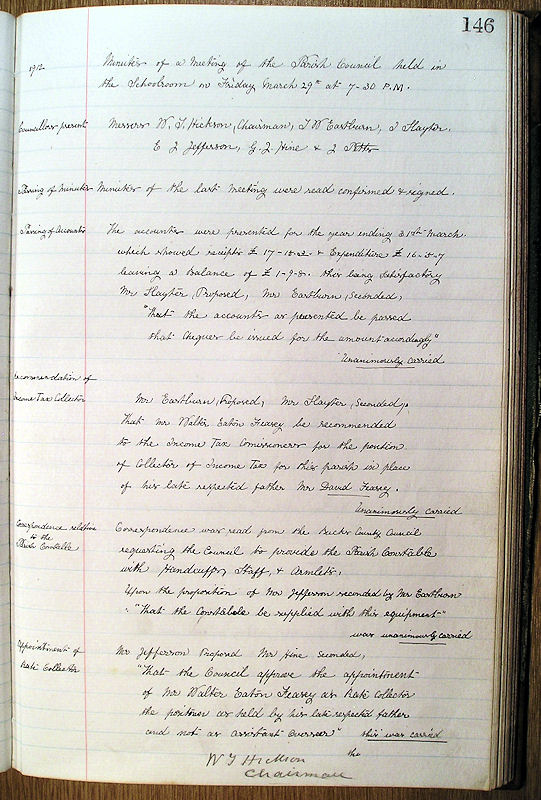 146
1912
Minutes of a Meeting of the Parish Council held in
the Schoolroom on Friday March 29th at 7-30 P.M.
Councillors present
Messrs W. J. Hickson, Chairman, J W Eastburn, J Slayter,
E J Jefferson, G. J. Hine & J
Passing of Minutes
Minutes of the last meeting were read confirmed & signed.
Passing of Accounts
The accounts were presented for the year ending 31st March
which showed receipts £ 17-15-2 & Expenditure £ 16-5-7
leaving a balance of £ 1-9-8. this being satisfactory
Mr Slayter, Proposed, Mr Eastburn, Seconded,
"That the accounts as presented be passed
that Cheques be issued for the amount accordingly"
Unanimously carried
Recommendation of
Income Tax Collector
Mr Eastburn, Proposed, Mr Slayter, Seconded,
That Mr Walter Eaton Fearey be recommended
to the Income Tax Comissioners for the position
of Collector of Income Tax for this parish in place
of his late respected father Mr David Fearey.
Unanimously carried
Correspondence relative
to the
Parish Constable
Correspondence was read from the Bucks County Council
requesting the Council to provide the Parish Constable
with Handcuffs, Staff, & Armlets,
Upon the proposition of Mr Jefferson seconded by Mr Eastburn
"That the Constable be supplied with this equipment"
was unanimously carried
Appointment of
Rate Collector
Mr Jefferson Proposed Mr Hine Seconded,
"That the Council approve the appointment
of Mr Walter Eaton Fearey as Rate Collector
the position as held by his late respected father
and not as assistant Overseer" this was carried
the
W J Hickson
Chairman